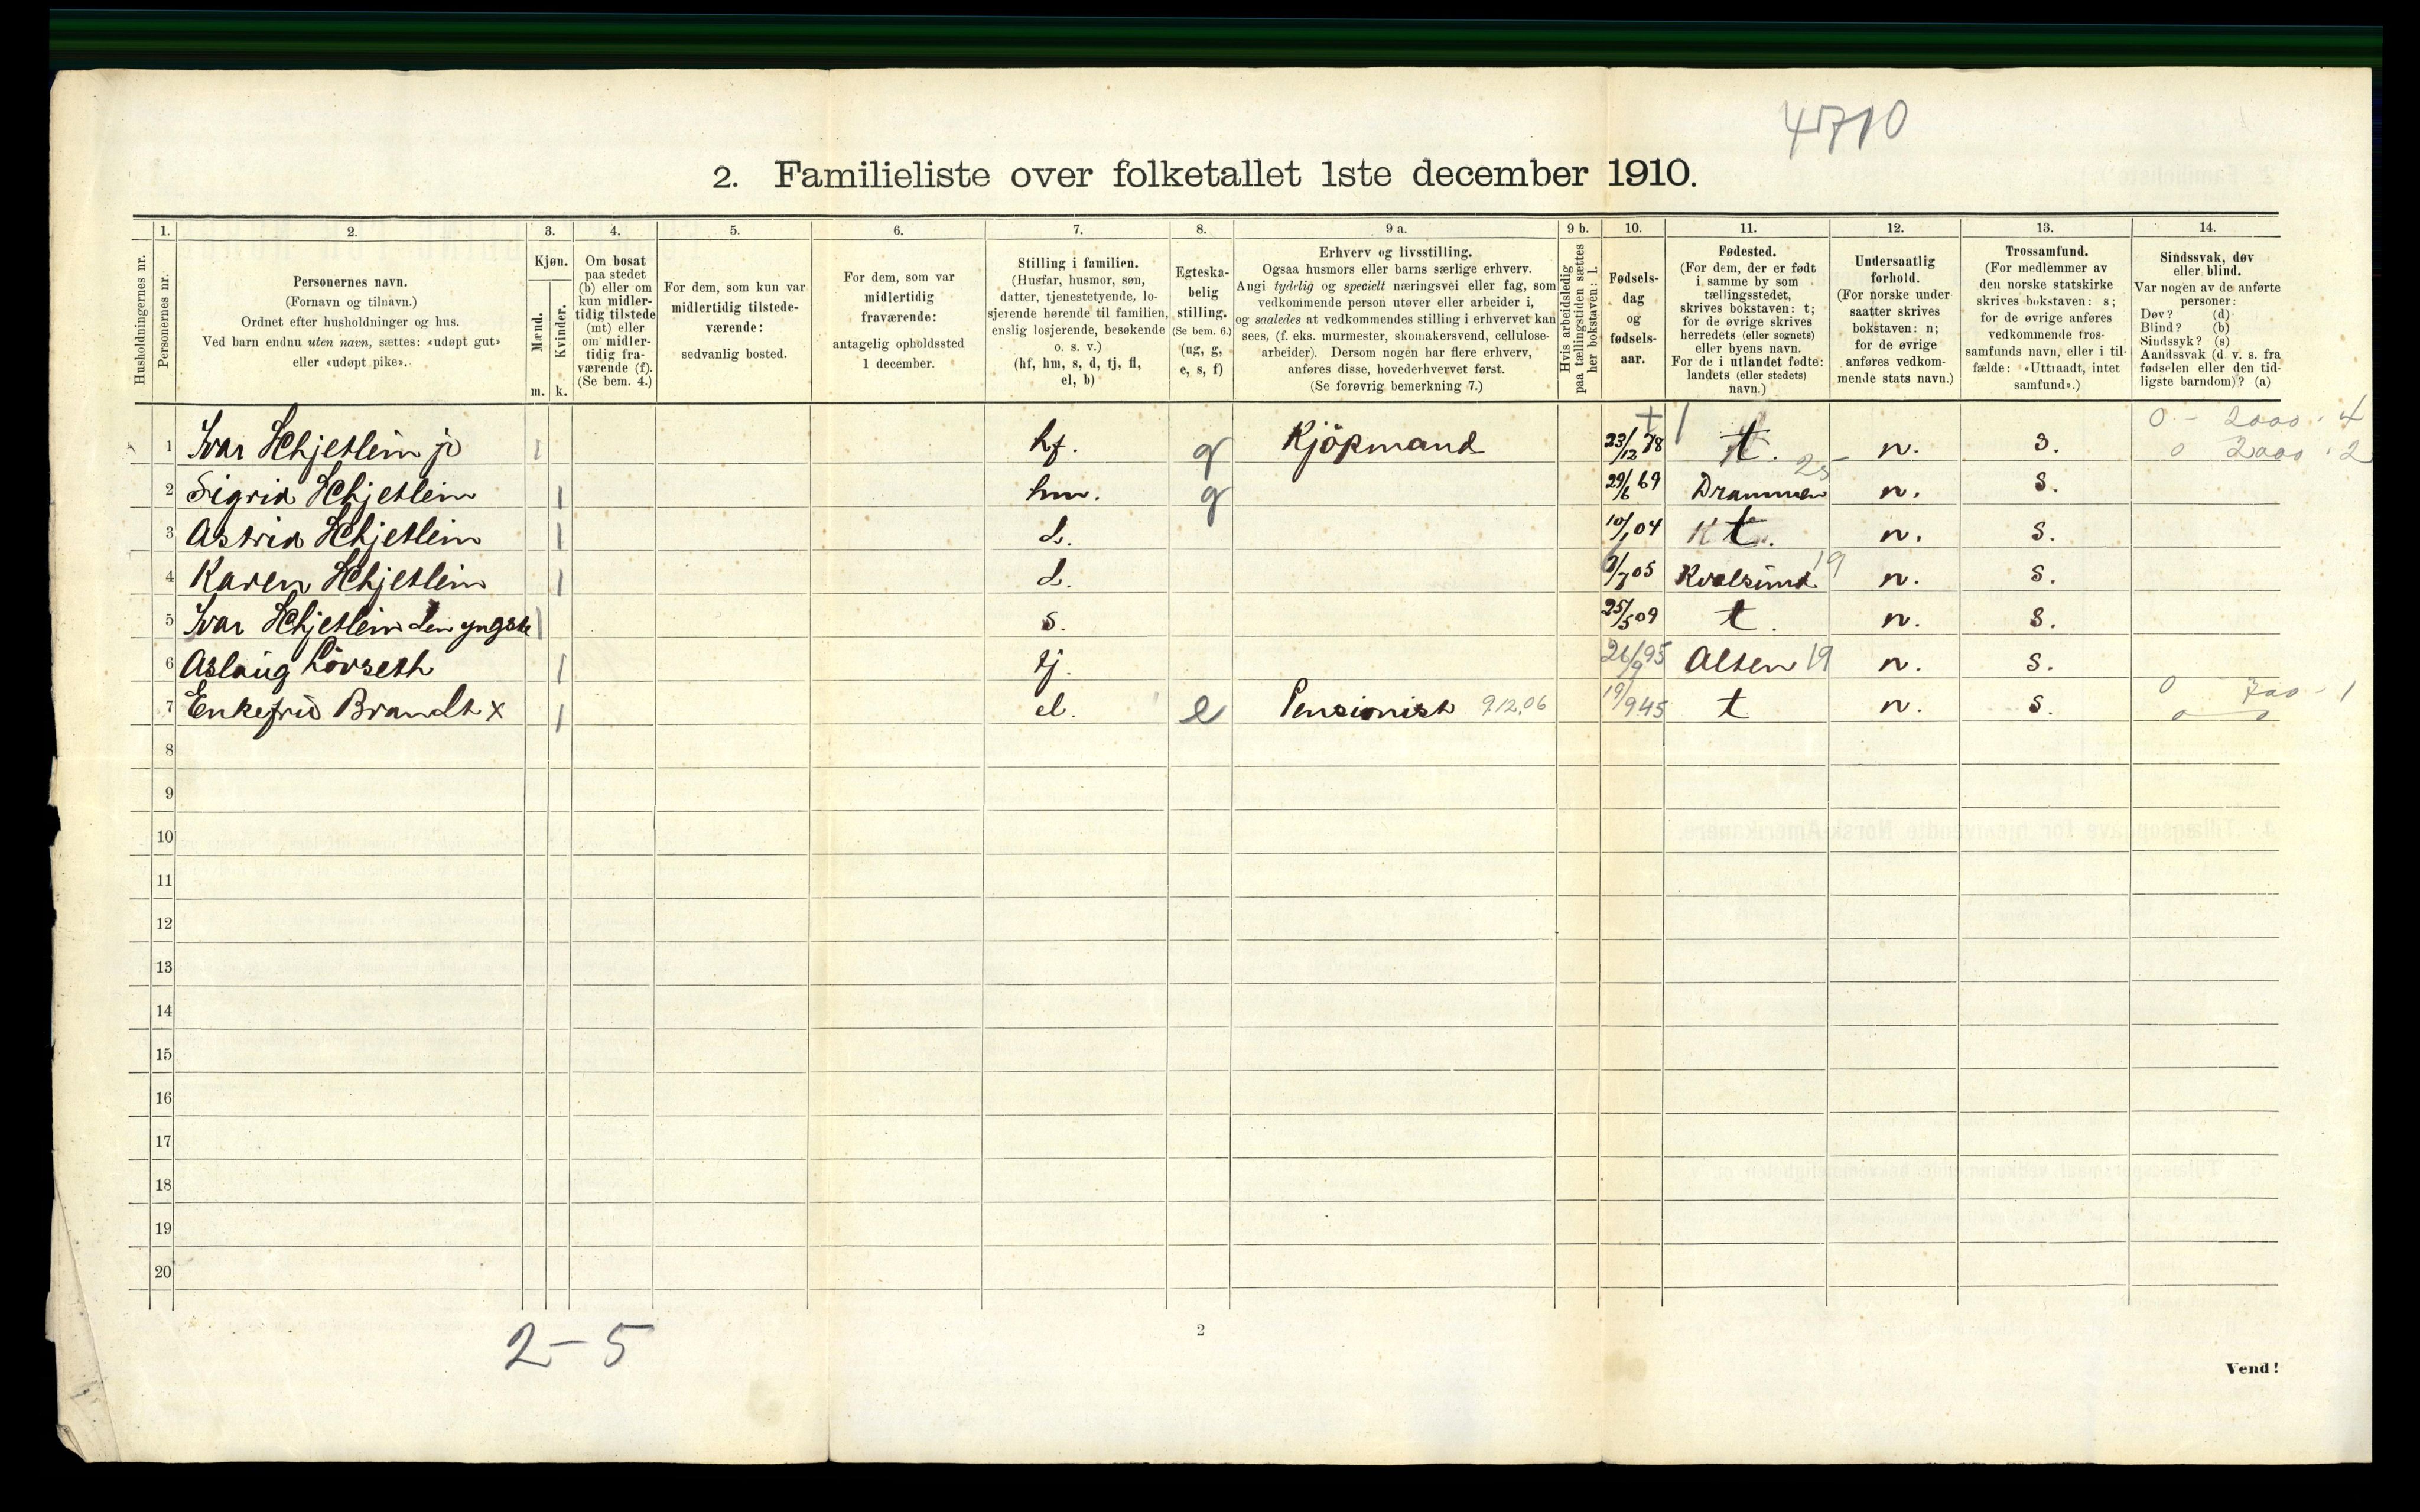 4710
2. Familieliste over folketallet 1ste december 1910.
Husholdningernes nr.
1. Personernes nr.
2. Personernes navn.
(Fornavn og tilnavn.)
Ordnet efter husholdninger og hus.
Ved barn endnu uten navn, sættes: «udøpt gut»
eller «udøpt pike».
3. Kjøn.
Mænd. m.
Kvinder. k.
4. Om bosat
paa stedet
(b) eller om
kun midler-
tidig tilstede
(mt) eller
om midler-
tidig fra-
værende (f).
(Se bem. 4.)
5. For dem, som kun var
midlertidig tilstede-
værende:
sedvanlig bosted.
6. For dem, som var
midlertidig
fraværende:
antagelig opholdssted
1 december.
7. Stilling i familien.
(Husfar, husmor, søn,
datter, tjenestetyende, lo-
sjerende hørende til familien,
enslig losjerende, besøkende
o. s. v.)
(hf, hm, s, d, tj, fl,
el, b)
8. Egteska-
belig
stilling.
(Se bem. 6.)
(ug, g,
e, s, f)
9 a. Erhverv og livsstilling.
Ogsaa husmors eller barns særlige erhverv.
Angi tydelig og specielt næringsvei eller fag, som
vedkommende person utøver eller arbeider i,
og saaledes at vedkommendes stilling i erhvervet kan
sees, (f. eks. murmester, skomakersvend, cellulose-
arbeider). Dersom nogen har flere erhverv,
anføres disse, hovederhvervet først.
(Se forøvrig bemerkning 7.)
9 b. Hvis arbeidsledig
paa tællingstiden sættes
her bokstaven: l.
10. Fødsels-
dag
og
fødsels-
aar.
11. Fødested.
(For dem, der er født
i samme by som
tællingsstedet,
skrives bokstaven: t;
for de øvrige skrives
herredets (eller sognets)
eller byens navn.
For de i utlandet fødte:
landets (eller stedets)
navn.)
12. Undersaatlig
forhold.
(For norske under-
saatter skrives
bokstaven: n;
for de øvrige
anføres vedkom-
mende stats navn.)
13. Trossamfund.
(For medlemmer av
den norske statskirke
skrives bokstaven: s;
for de øvrige anføres
vedkommende tros-
samfunds navn, eller i til-
fælde: «Uttraadt, intet
samfund».)
14. Sindssvak, døv
eller blind.
Var nogen av de anførte
personer:
Døv? (d)
Blind? (b)
Sindssyk? (s)
Aandssvak (d. v. s. fra
fødselen eller den tid-
ligste barndom)? (a)
0 - 2000 - 4
1 Ivar Hhjetlein jr 1 hf. g Kjöpmand 23/12 78 t. n. s. 0 2000 . 2
2 Sigrid Hhjetlein 1 hm. g 29/6 69 Drammen 25 n. s.
3 Astrid Hhjetlein 1 d. 10/1 04 t. n. s.
4 Karen Hhjetlein 1 d. /7 05 Kvalsund 19 n. s.
5 Ivar Hhjetlein den yngste 1 s. 25/5 09 t. n. s.
6 Aslaug Lövseth 1 tj. 26/9 95 Alten 19 n. s.
7 Enkefru Brandt x 1 el. e Pensionist 9.12.06 19/9 45 t n. s. 0 - 700 - 1
0 0
8
9
10
11
12
13
14
15
16
17
18
19
20
2 - 5
2
Vend!